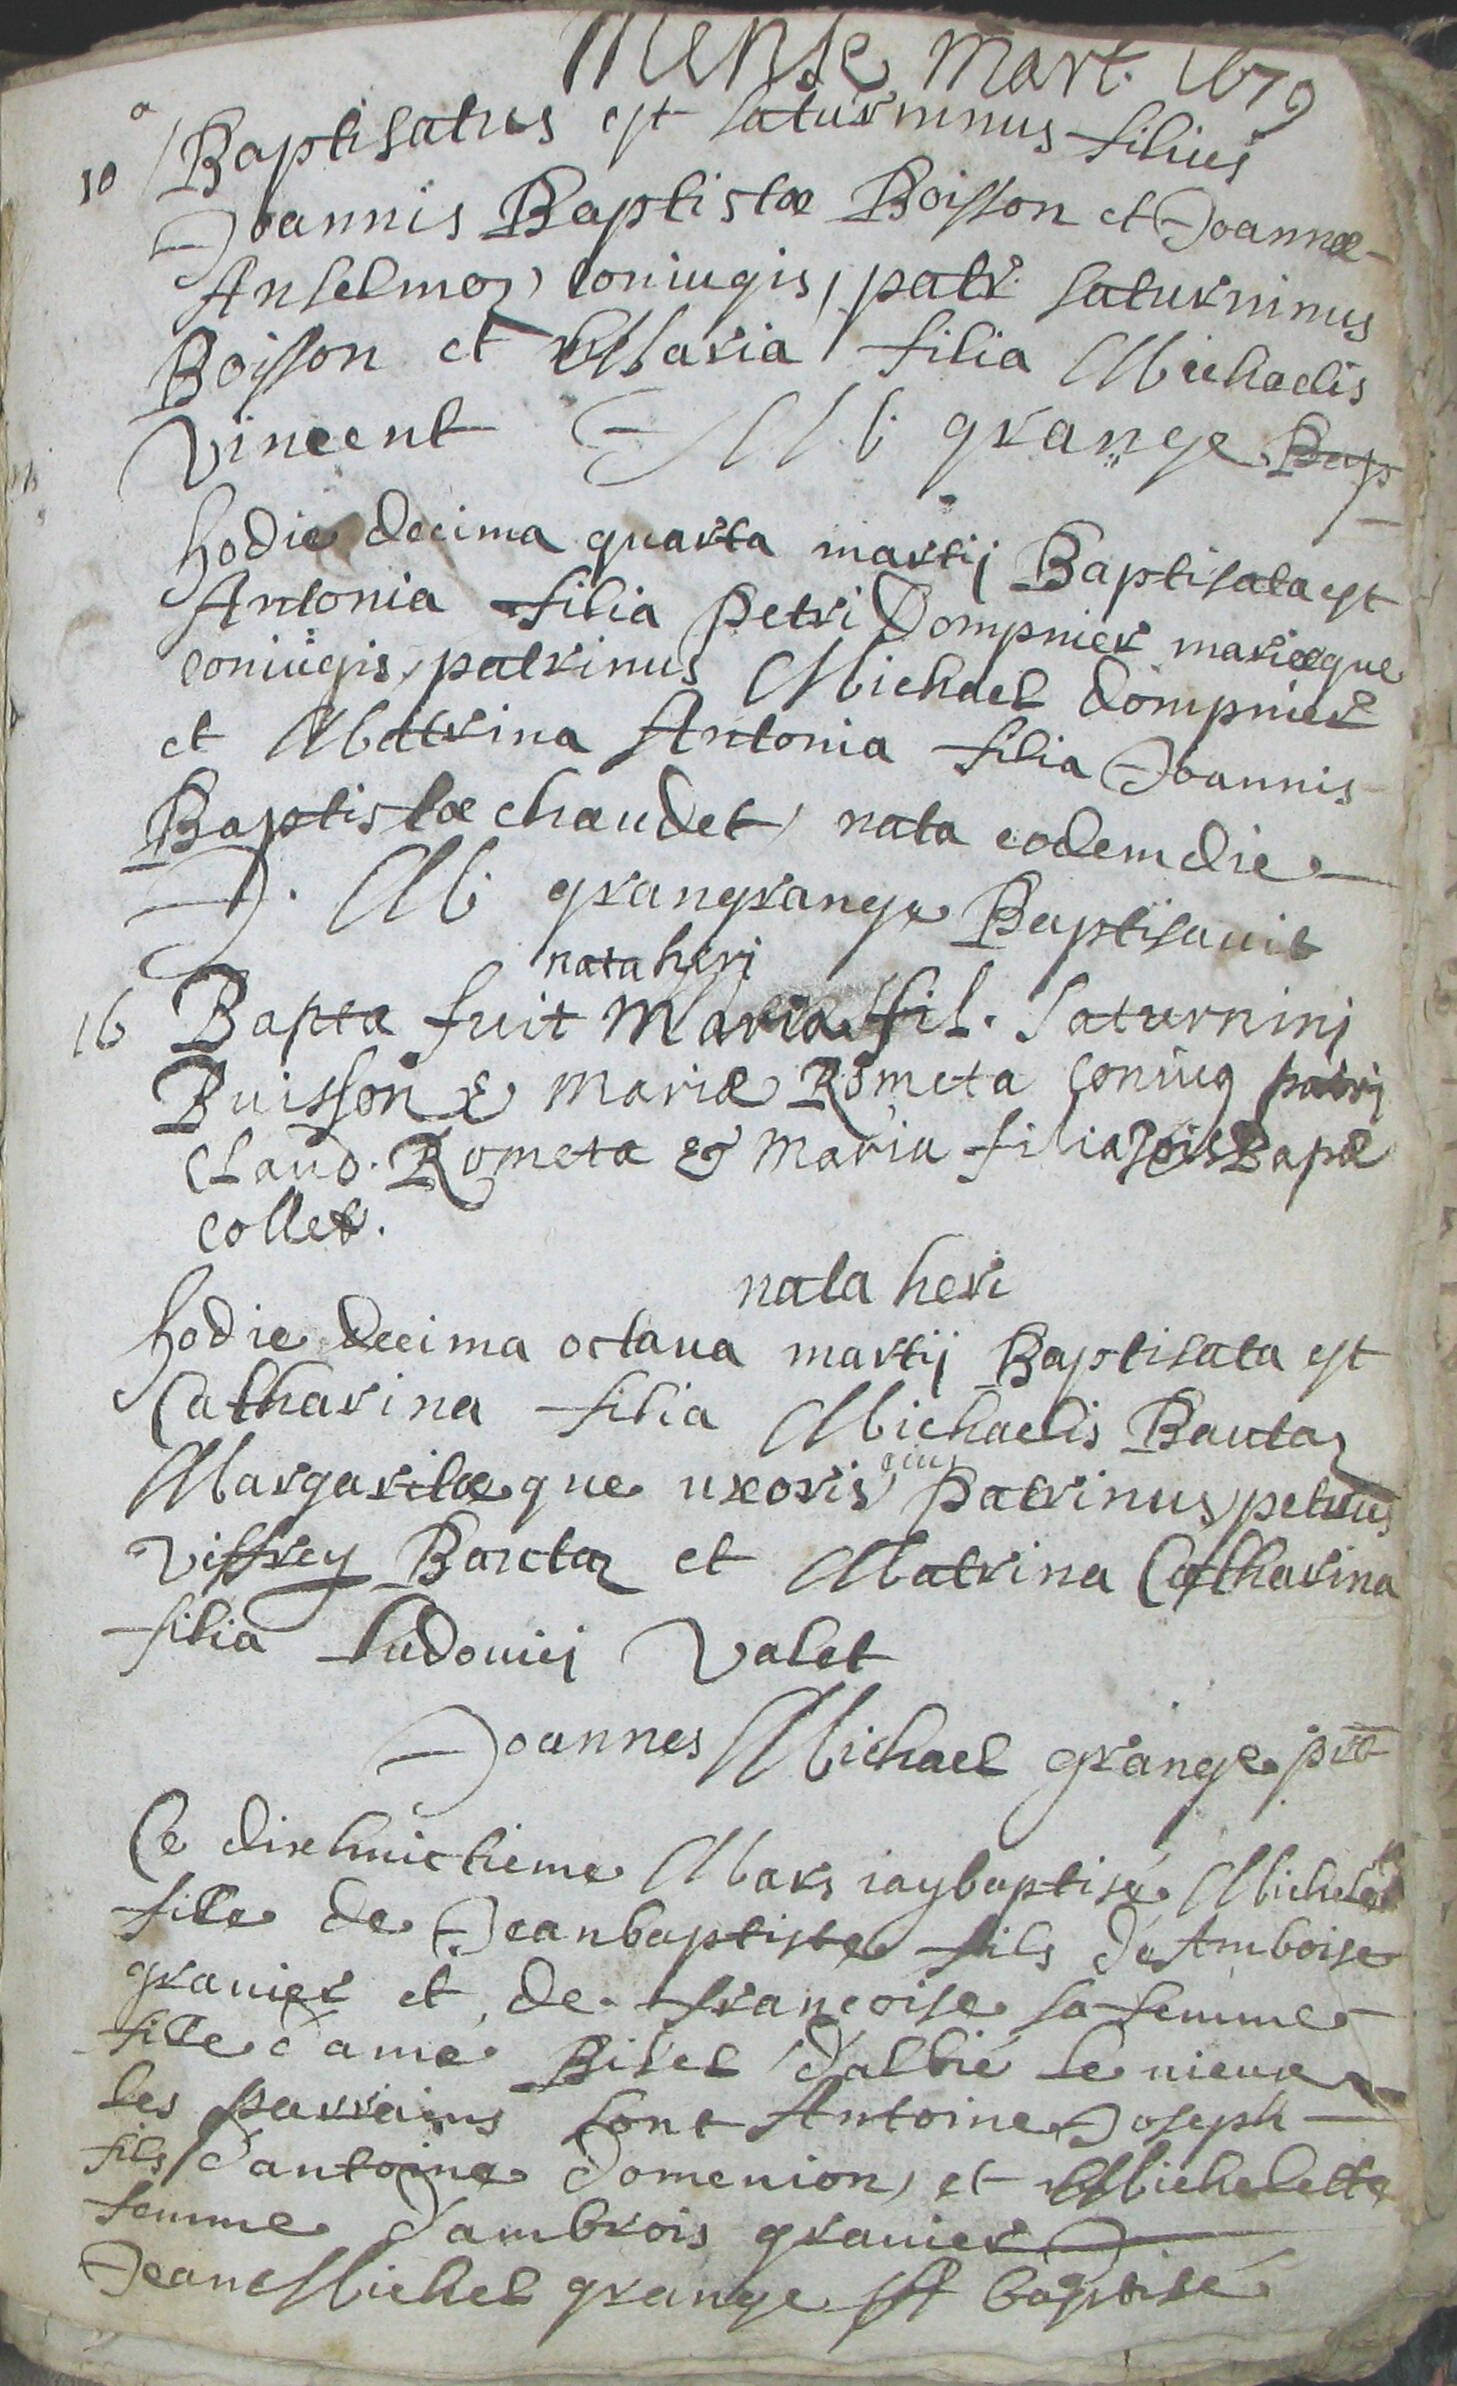 Mense mart. 1679
10 Baptisatus est saturninus filius
Joannis Baptistæ Boisson et Joannæ
Anselmoz coniugis, patr. saturninus
Boisson et Maria filia Michaelis
Vincent J M grange Bap
hodie decima quarta martij Baptisata est
Antonia filia Petri Dompnier mariæque
coniugis, patrinus Michael dompnier
et Matrina Antonia filia Joannis
Baptistæ chaudet, nata eodem die
J. M. grangrange Baptisauit
nata heri
16 Bapta fuit Maria fil. Saturninj
Buisson & Mariæ Rometa coniug patrj
Claud. Rometa & Maria filia Jois Bapæ
collet.
nata heri
hodie decima octaua martij Baptisata est
Catharina filia Michaelis Bautaz
Margaritæque uxoris eius Patrinus, petrus
Viffrey Bautaz et Matrina Catharina
filia Ludouici Valet
Joannes Michael grange prr
Ce dixhuictieme Mars iay baptisé
fille de Jeanbaptiste fils de Amboise
granier et de francoise sa femme
fille d'amé Bisel d'albié le vieux
les parrains sont Antoine Joseph
fils d'antoine domenion, et Michelette
femme d'ambrois granier
Jean Michel grange baptisé